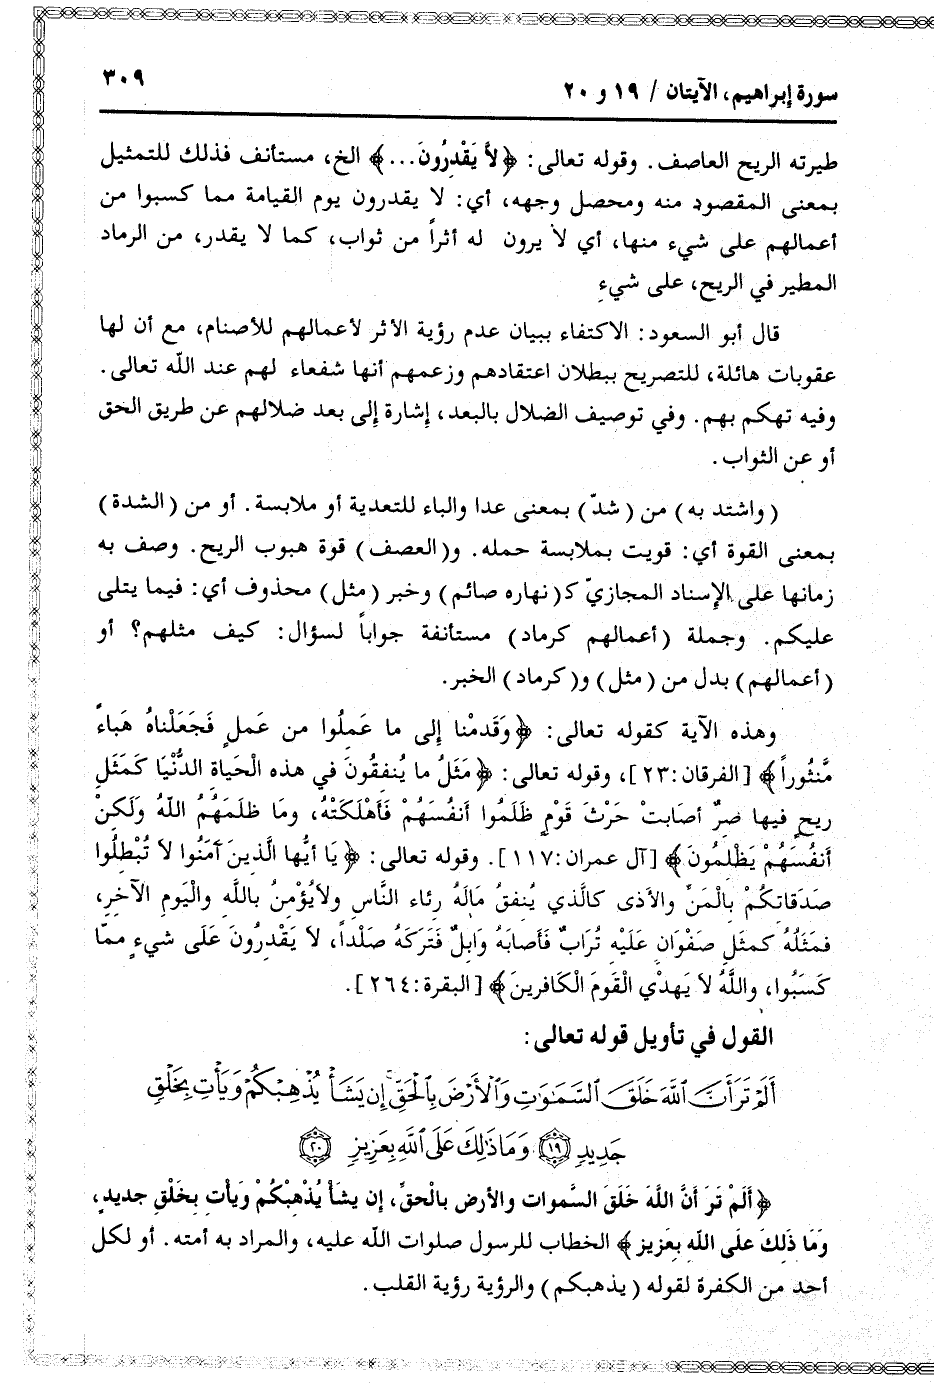 سورة إبراهيم، الآيتان / ١٩ و ٢٠
٣٠٩
طيرته الريح العاصف. وقوله تعالى: ﴿لاَّ يَقْدِرُونَ...﴾ الخ، مستأنف فذلك للتمثيل
بمعنى المقصود منه ومحصل وجهه، أي: لا يقدرون يوم القيامة مما كسبوا من
أعمالهم على شيء منها، أي لا يرون له أثراً من ثواب، كما لا يقدر، من الرماد
المطير في الريح، على شيءِ
قال أبو السعود: الاكتفاء ببيان عدم رؤية الأثر لأعمالهم للأصنام، مع أن لها
عقوبات هائلة، للتصريح ببطلان اعتقادهم وزعمهم أنها شفعاء لهم عند اللّه تعالى.
وفيه تهكم بهم. وفي توصيف الضلال بالبعد، إشارة إلى بعد ضلالهم عن طريق الحق
أو عن الثواب.
(واشتد به) من (شدّ) بمعنى عدا والباء للتعدية أو ملابسة. أو من (الشدة)
بمعنى القوة أي: قويت بملابسة حمله. و(العصف) قوة هبوب الريح. وصف به
زمانها على الإسناد المجازيّ كـ(نهاره صائم) وخبر (مثل) محذوف أي: فيما يتلى
عليكم. وجملة (أعمالهم كرماد) مستأنفة جواباً لسؤال: كيف مثلهم؟ أو
(أعمالهم) بدل من (مثل) و(كرماد) الخبر.
وهذه الآية كقوله تعالى: ﴿وَقَدِمْنا إلى ما عَمِلُوا من عَملٍ فَجَعَلْناهُ هَباءً
مَّنثُوراً﴾ [الفرقان:٢٣]، وقوله تعالى: ﴿مَثَلُ ما يُنفِقُونَ في هذه الْحَياةِ الدُّنْيَا كَمَثَلِ
ريحٍ فيها صِرٌّ أصَابتْ حَرْثَ قَوْمٍ ظَلَمُوا أنفُسَهُمْ فَأَهْلَكَتْهُ، ومَا ظَلَمَهُمُ اللّهُ وَلَكِنْ
أنفُسَهُمْ يَظْلِمُونَ﴾ [آل عمران:١١٧]. وقوله تعالى: ﴿يَا أيُّها الَّذينَ آمَنُوا لاَ تُبْطِلُوا
صَدَقاتِكُمْ بالْمَنِّ والأذى كالَّذي يُنفِقُ مَالَهُ رِئاء النَّاسِ ولاَيُؤْمِنُ باللَّهِ والْيَومِ الآخِرِ،
فمَثَلُهُ كمثَلِ صفْوَانٍ عَلَيْهِ تُرَابٌ فَأصَابَهُ وَابِلٌ فَتَرَكَهُ صَلْداً، لاَ يَقْدِرُونَ عَلَى شيءٍ ممَّا
كَسَبُوا، واللَّهُ لاَ يَهدْي الْقَومَ الْكَافِرينَ﴾ [البقرة:٢٦٤].
القول في تأويل قوله تعالى:
أَلَمْ تَرَ أَنَّ ٱللَّهَ خَلَقَ ٱلسَّمَٰوَٰتِ وَٱلْأَرْضَ بِٱلْحَقِّ ۚ إِن يَشَأْ يُذْهِبْكُمْ وَيَأْتِ بِخَلْقٍ
جَدِيدٍ ۝١٩ وَمَا ذَٰلِكَ عَلَى ٱللَّهِ بِعَزِيزٍ ۝٢٠
﴿ألَمْ تَرَ أنَّ اللَّهَ خَلَقَ السَّموات والأرض بالْحَقِّ، إن يشأ يُذْهِبْكُمْ وَيأت بِخَلْقٍ جديدٍ،
وَمَا ذَلِكَ عَلَى اللَّهِ بِعَزيزٍ﴾ الخطاب للرسول صلوات اللّه عليه، والمراد به أمته. أو لكل
أحد من الكفرة لقوله (يذهبكم) والرؤية رؤية القلب.